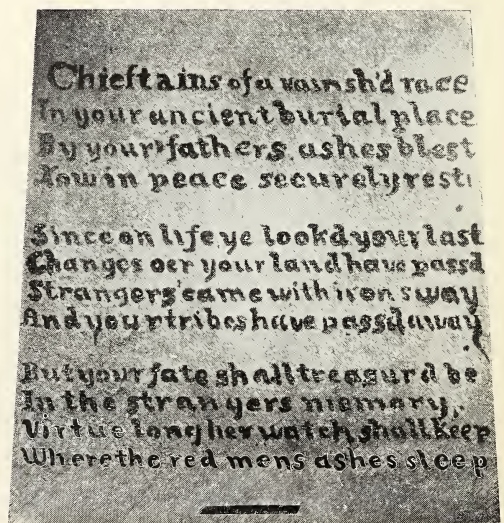 Chieftains of a vainsh'd race
In your ancient burial place
By your fathers ashes blest
Now in peace securely rest
Since on life ye lookd your last
Changes oer your land have passd
Strangers came with iron sway
And your tribes have passd away
But your fate shall treasurd be
In the strangers memory
Virtue long her watch shall keep
Where the red mens ashes sleep